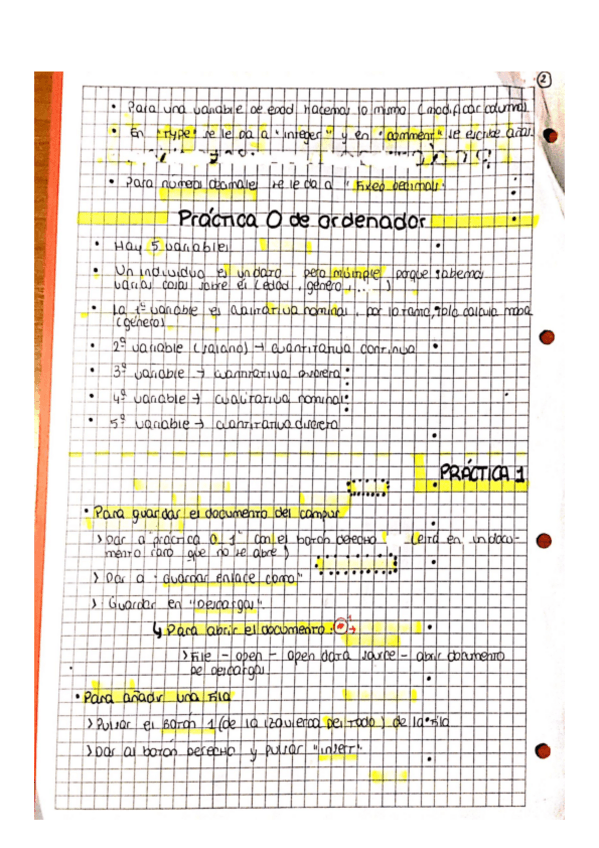 2
• Para una variable de edad hacemos lo mismo (modificar columna)
• En "Type" se le da a "integer" y en "comment" se escribe años
• Para números decimales se le da a "Fixed decimals"
Práctica 0 de ordenador
• Hay 5 variables
• Un individuo es un dato pero múltiple porque sabemos
varias cosas sobre él (edad, género, ... )
• La 1º variable es cualitativa nominal, por lo tanto, solo calcula moda
(género)
• 2º variable (salario) → cuantitativa continua
• 3º variable → cuantitativa discreta
• 4º variable → cualitativa nominal
• 5º variable → cuantitativa discreta
PRÁCTICA 1
• Para guardar el documento del campus
> Dar a "práctica 0.1" con el botón derecho (está en un docu-
mento raro que no se abre)
> Dar a "guardar enlace como"
> Guardar en "Descargas"
↳ Para abrir el documento: * →
> File - open - open data source - abrir documento
de descargas
• Para añadir una fila
> Pulsar el botón 1 (de la izquierda del todo) de la fila
> Dar al botón derecho y pulsar "insert"